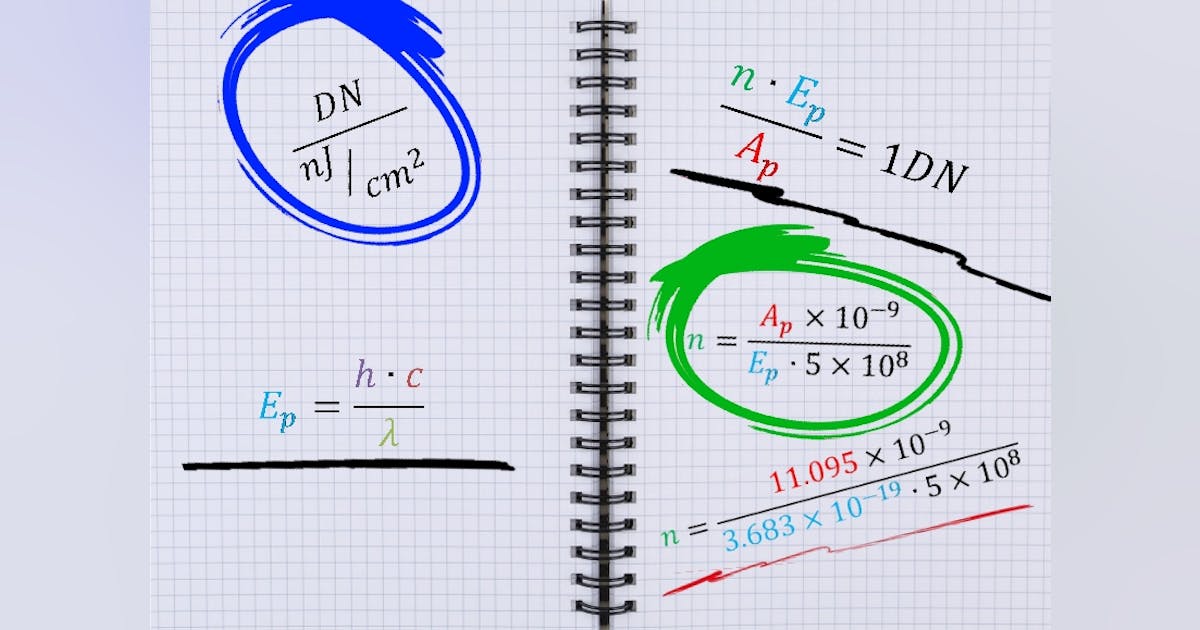 DN
nJ / cm²
Eₚ = h · c / λ
n · Eₚ / Aₚ = 1DN
n = Aₚ × 10⁻⁹ / Eₚ · 5 × 10⁸
n = 11.095 × 10⁻⁹ / 3.683 × 10⁻¹⁹ · 5 × 10⁸